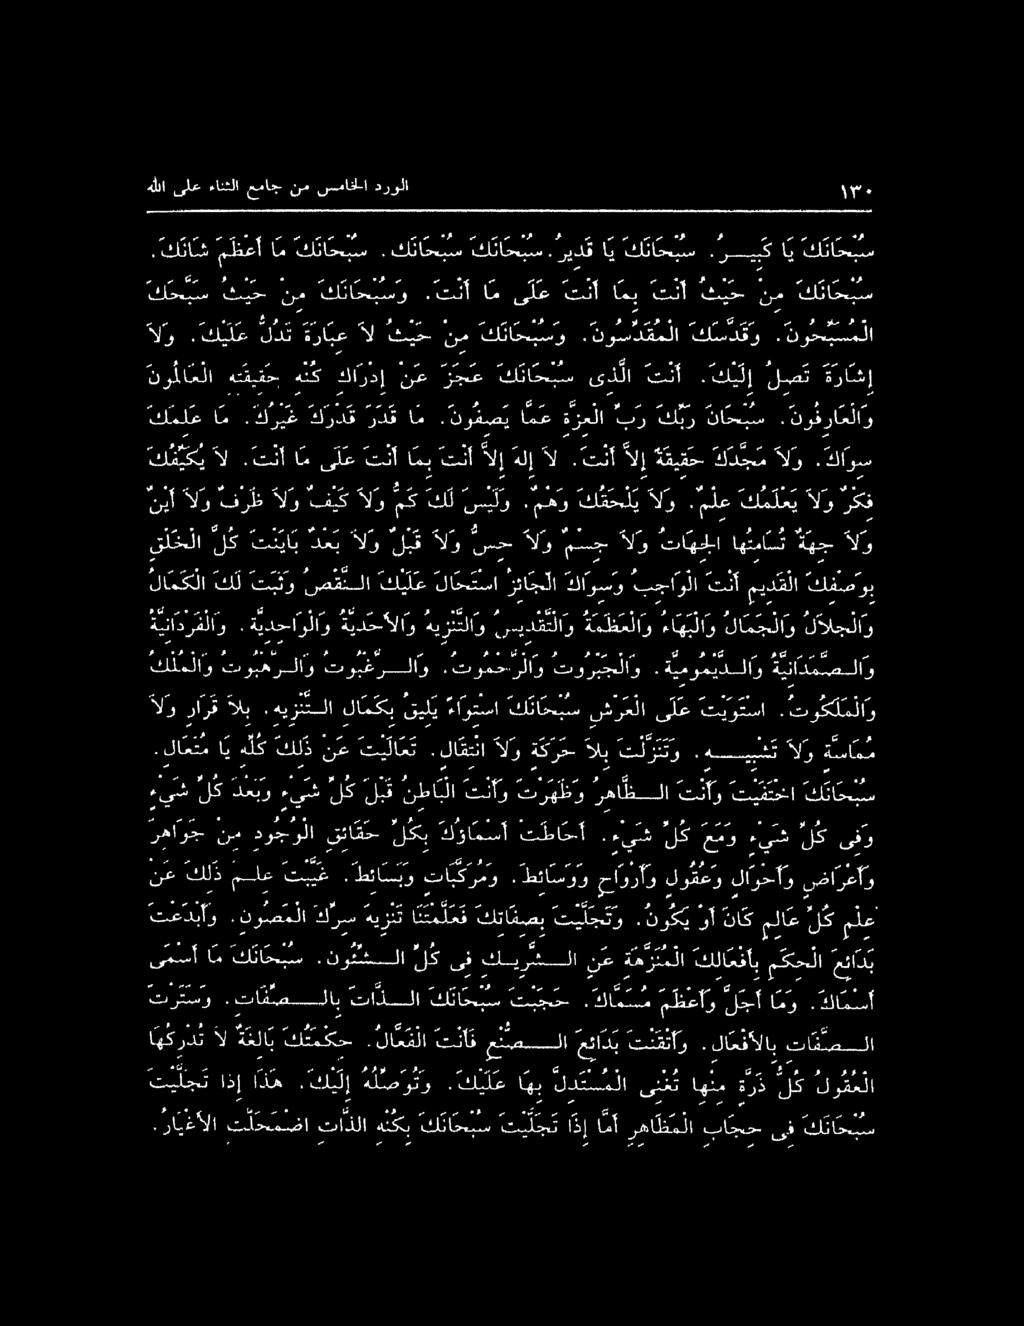 ١٣٠ الورد الخامس من جامع الثناء على الله
سُبْحَانَكَ يَا كَبِيـــرُ. سُبْحَانَكَ يَا قَدِيرُ. سُبْحَانَكَ سُبْحَانَك. سُبْحَانَكَ مَا أَعْظَمَ شَانَكَ.
سُبْحَانَكَ مِنْ حَيْثُ أَنْتَ بِمَا أَنْتَ عَلَى مَا أَنْتَ. وَسُبْحَانَكَ مِنْ حَيْثُ سَبَّحَكَ
الْمُسَبِّحُونَ. وَقَدَّسَكَ الْمُقَدِّسُونَ. وَسُبْحَانَكَ مِنْ حَيْثُ لاَ عِبَارَةَ تَدُلُّ عَلَيْكَ. وَلاَ
إِشَارَةَ تَصِلُ إِلَيْكَ. أَنْتَ الَّذِى سُبْحَانَكَ عَجَزَ عَنْ إِدْرَاكِ كُنْهِ حَقِيقَتِهِ الْعَالِمُونَ
وَالْعَارِفُونَ. سُبْحَانَ رَبِّكَ رَبِّ الْعِزَّةِ عَمَّا يَصِفُونَ. مَا قَدَرَ قَدْرَكَ غَيْرُكَ. مَا عَلِمَكَ
سِوَاكَ. وَلاَ مَجَّدَكَ حَقِيقَةً إِلاَّ أَنْتَ. لاَ إِلهَ إِلاَّ أَنْتَ بِمَا أَنْتَ عَلَى مَا أَنْتَ. لاَ يُكَيِّفُكَ
فِكْرٌ وَلاَ يَعْلَمُكَ عِلْمٌ. وَلاَ يَلْحَقُكَ وَهْمٌ. وَلَيْسَ لَكَ كَمٌّ وَلاَ كَيْفٌ وَلاَ ظَرْفٌ وَلاَ أَيْنٌ
وَلاَ جِهَةٌ تُسَامِتُهَا الْجِهَاتُ وَلاَ جِسْمٌ وَلاَ حِسٌّ وَلاَ قَبْلٌ وَلاَ بَعْدٌ بَايَنْتَ كُلَّ الْخَلْقِ
بِوَصْفِكَ الْقَدِيمِ أَنْتَ الْوَاجِبُ وَسِوَاكَ الْجَائِزُ اسْتَحَالَ عَلَيْكَ الــنَّقْصُ وَثَبَتَ لَكَ الْكَمَالُ
وَالْجَلاَلُ وَالْجَمَالُ وَالْبَهَاءُ وَالْعَظَمَةُ وَالتَّقْدِيسُ وَالتَّنْزِيهُ وَالأَحَدِيَّةُ وَالْوَاحِدِيَّة. وَالْفَرْدَانِيَّةُ
وَالــصَّمَدَانِيَّةُ وَالــدَّيْمُومِيَّة. وَالْجَبَرُوتُ وَالرَّحَمُوتُ. وَالــرَّغَبُوتُ وَالــرَّهَبُوتُ وَالْمُلْكُ
وَالْمَلَكُوتُ. اسْتَوَيْتَ عَلَى الْعَرْشِ سُبْحَانَكَ اسْتِوَاءً يَلِيقُ بِكَمَالِ الــتَّنْزِيهِ. بِلاَ قَرَارٍ وَلاَ
مُمَاسَّةٍ وَلاَ تَشْبِيــــهٍ. وَتَنَزَّلْتَ بِلاَ حَرَكَةٍ وَلاَ انْتِقَال. تَعَالَيْتَ عَنْ ذَلِكَ كُلِّهِ يَا مُتَعَالِ.
سُبْحَانَكَ اخْتَفَيْتَ وَأَنْتَ الــظَّاهِرُ وَظَهَرْتَ وَأَنْتَ الْبَاطِنُ قَبْلَ كُلِّ شَيْءٍ وَبَعْدَ كُلِّ شَيْءٍ
وَفِى كُلِّ شَيْءٍ وَمَعَ كُلِّ شَيْءٍ. أَحَاطَتْ أَسْمَاؤُكَ بِكُلِّ حَقَائِقِ الْوُجُودِ مِنْ جَوَاهِرَ
وَأَعْرَاضٍ وَأَحْوَالٍ وَعُقُولٍ وَأَرْوَاحٍ وَوَسَائِطَ. وَمُرَكَّبَاتٍ وَبَسَائِطَ. غَيَّبْتَ عِلــمَ ذَلِكَ عَنْ
عِلْمِ كُلِّ عَالِمٍ كَانَ أَوْ يَكُونُ. وَتَجَلَّيْتَ بِصِفَاتِكَ فَعَلَّمْتَنَا تَنْزِيهَ سِرِّكَ الْمَصُونِ. وَأَبْدَعْتَ
بَدَائِعَ الْحِكَمِ بِأَفْعَالِكَ الْمُنَزَّهَةِ عَنِ الــشَّرِيــكِ فِى كُلِّ الــشُّئُونِ. سُبْحَانَكَ مَا أَسْمَى
أَسْمَاكَ. وَمَا أَجَلَّ وَأَعْظَمَ مُسَمَّاكَ. حَجَبْتَ سُبْحَانَكَ الــذَّاتَ بِالــصِّفَاتِ. وَسَتَرْتَ
الــصِّفَاتِ بِالأَفْعَالِ. وَأَتْقَنْتَ بَدَائِعَ الــصُّنْعِ فَأَنْتَ الْفَعَّالُ. حِكْمَتُكَ بَالِغَةٌ لاَ تُدْرِكُهَا
الْعُقُولُ كُلُّ ذَرَّةٍ مِنْهَا تُغْنِى الْمُسْتَدِلَّ بِهَا عَلَيْكَ. وَتُوَصِّلُهُ إِلَيْكَ. هَذَا إِذَا تَجَلَّيْتَ
سُبْحَانَكَ فِى حِجَابِ الْمَظَاهِرِ أَمَّا إِذَا تَجَلَّيْتَ سُبْحَانَكَ بِكُنْهِ الذَّاتِ اضْمَحَلَّتِ الأَغْيَارُ.